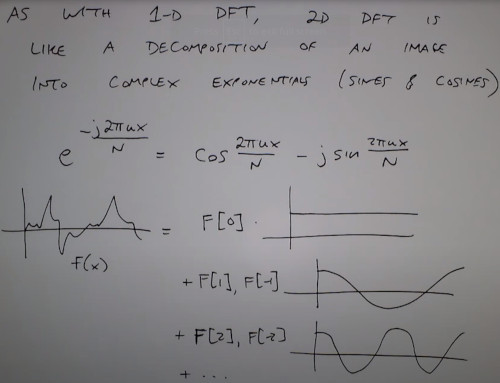 AS WITH 1-D DFT, 2D DFT IS
LIKE A DECOMPOSITION OF AN IMAGE
INTO COMPLEX EXPONENTIALS (SINES & COSINES)
e^(-j2πux/N) = cos 2πux/N - j sin 2πux/N
f(x) = F[0] ·
+ F[1], F[-1]
+ F[2], F[-2]
+ ...